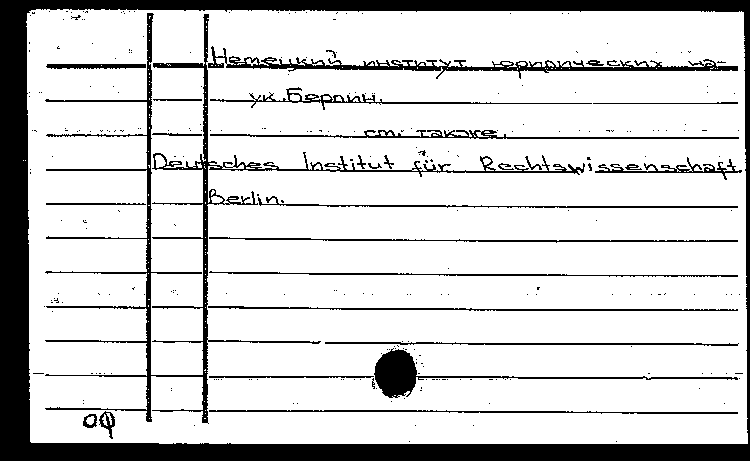 Немецкий институт юридических на-
ук. Берлин.
см. также.
Deutsches Institut für Rechtswissenschaft.
Berlin.